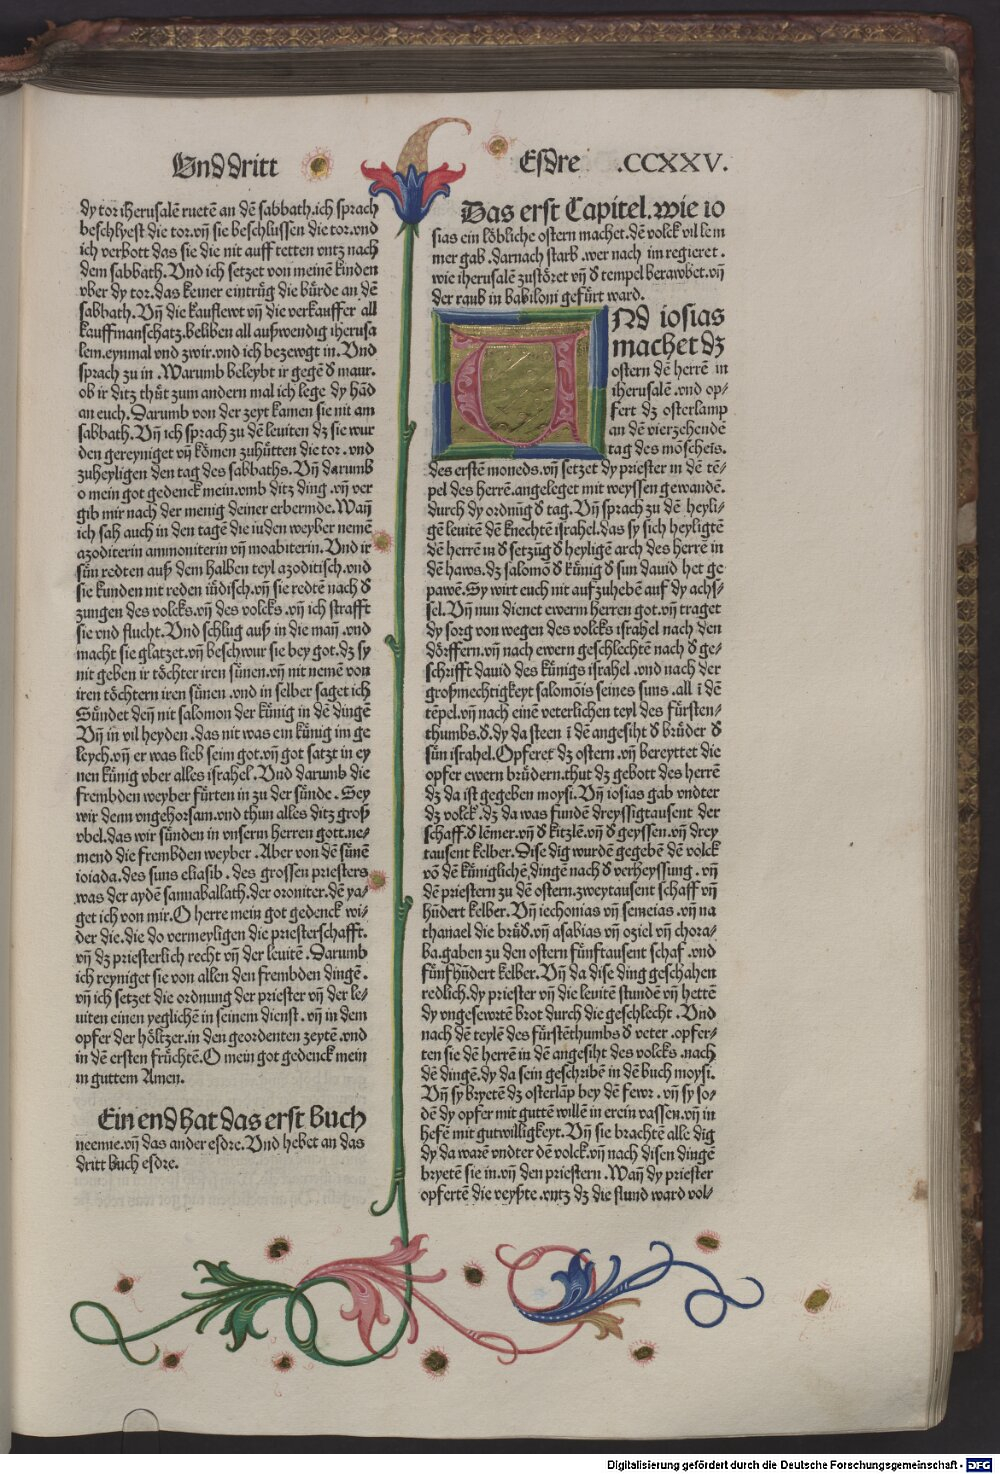 Vnd dritt Esdre .CCXXV.
dy tor iherusalē ruetē an dē sabbath.ich sprach
beschlyest die tor.vñ sie beschlussen die tor.vnd
ich verbott das sie die nit auff tetten vntz nach
dem sabbath. Vnd ich setzet von meinē kinden
vber dy tor.das keiner eintrůg die bürde an dē
sabbath. Vñ die kauflewt vñ die verkauffer all
kauffmanschatz.beliben all außwendig iherusa
lem.eynmal vnd zwir.vnd ich bezewgt in. Vnd
sprach zu in .Warumb beleybt ir gegē ď maur.
ob ir ditz thůt zum andern mal ich lege dy hād
an euch. Darumb von der zeyt kamen sie nit am
sabbath. Vñ ich sprach zu dē leuiten dz sie wur
den gereyniget vñ kōmen zuhůtten die tor .vnd
zuheyligen den tag des sabbaths. Vñ darumb
o mein got gedenck mein.vmb ditz ding .vñ ver
gib mir nach der menig deiner erbermde. Wañ
ich sah auch in den tagē die iuden weyber nemē
azoditerin ammoniterin vñ moabiterin. Vnd ir
sün redten auß dem halben teyl azoditisch.vnd
sie kunden nit reden iüdisch.vñ sie redtē nach ď
zungen des volcks.vñ des volcks .vñ ich strafft
sie vnd flucht. Vnd schlug auß in die mañ .vnd
macht sie glatzet.vñ beschwur sie bey got.dz sy
nit geben ir tōchter iren sünen.vñ nit nemē von
iren tōchtern iren sünen .vnd in selber saget ich
Sündet deñ nit salomon der künig in dē dingē
Vñ in vil heyden .das nit was ein künig im ge
leych.vñ er was lieb seim got.vñ got satzt in ey
nen künig vber alles israhel. Vnd darumb die
frembden weyber fürten in zu der sünde . Sey
wir denn vngehorsam.vnd thun alles ditz groß
vbel.das wir sünden in vnserm herren gott.ne-
mend die frembden weyber .Aber von dē sünē
ioiada.des suns eliasib . des grossen priesters
was der aydē sannaballath.der oroniter.dē ya-
get ich von mir. O herre mein got gedenck wi-
der die.die do vermeyligen die priesterschafft.
vñ dz priesterlich recht vñ der leuitē .Darumb
ich reyniget sie von allen den frembden dingē .
vñ ich setzet die ordnung der priester vñ der le-
uiten einen yeglichē in seinem dienst .vñ in dem
opfer der hōltzer.in den geordenten zeytē .vnd
in dē ersten früchtē. O mein got gedenck mein
in guttem Amen.
Ein end hat das erst buch
neemie.vñ das ander esdre. Vnd hebet an das
dritt buch esdre.
Das erst Capitel.wie io
sias ein lōbliche ostern machet.dē volck vil lem
mer gab .darnach starb .wer nach im regieret .
wie iherusalē zustōret vñ ď tempel berawbet.vñ
der raub in babiloni gefürt ward.
UNd iosias
machet dz
ostern dē herrē in
iherusalē .vnd op-
fert dz osterlamp
an dē vierzehendē
tag des mōscheīs.
des erstē moneds.vñ setzet dy priester in dē tē-
pel des herrē.angeleget mit weyssen gewandē.
durch dy ordnūg ď tag. Vñ sprach zu dē heyli-
gē leuitē dē knechtē israhel.das sy sich heyligtē
dē herrē in ď setzūg ď heyligē arch des herrē in
dē haws.dz salomō ď künig ď sun dauid het ge
pawē. Sy wirt euch nit aufzuhebē auf dy achs-
sel. Vñ nun dienet ewerm herren got.vñ traget
dy sorg von wegen des volcks israhel nach den
dōrffern.vñ nach ewern geschlechtē nach ď ge-
schrifft dauid des künigs israhel .vnd nach der
großmechtigkeyt salomōis seines suns .all ī dē
tēpel.vñ nach einē veterlichen teyl des fürsten-
thumbs.ď.dy da steen ī dē angesiht ď brüder ď
sün israhel. Opferet dz ostern.vñ bereyttet die
opfer ewern brüdern.thut dz gebott des herrē
dz da ist gegeben moysi. Vñ iosias gab vndter
dz volck.dz da was fundē dreyssigtausent der
schaff.ď lēmer.vñ ď kitzlē.vñ ď geyssen.vñ drey
tausent kelber. Dise dīg wurdē gegebē dē volck
vō dē küniglichē dingē nach ď verheyssung .vñ
dē priestern zu dē ostern.zweytausent schaff vñ
hūdert kelber. Vñ iechonias vñ semeias .vñ na
thanael die brůď.vñ asabias vñ oziel vñ chora-
ba.gaben zu den ostern fünftausent schaf .vnd
fünfhūdert kelber. Vñ da dise ding geschahen
redlich.dy priester vñ die leuitē stundē vñ hettē
dy vngesewrtē brot durch die geschlecht . Vnd
nach dē teylē des fürstēthumbs ď veter .opfer-
ten sie dē herrē in dē angesiht des volcks .nach
dē dingē.dy da sein geschribē in dē buch moysi.
Vñ sy brytetē dz osterlāp bey dē fewr .vñ sy so-
dē dy opfer mit guttē willē in erein vassen.vñ in
hefē mit gutwilligkeyt. Vñ sie brachtē alle dīg
dy da warē vndter dē volck.vñ nach disen dingē
bryetē sie in.vñ den priestern. Wañ dy priester
opfertē die veyßte.vntz dz die stund ward vol-
Digitalisierung gefördert durch die Deutsche Forschungsgemeinschaft - DFG